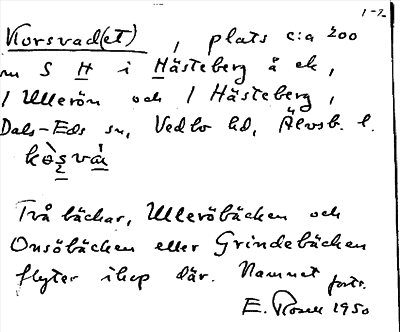 1-7.
Korsvad(et), plats c:a 200
m S H i Hästeberg å ek,
1 Ullerön och 1 Hästeberg,
Dals-Eds sn, Vedbo hd, Älvsb. l.
Två bäckar, Ulleröbäcken och
Onsöbäcken eller Grindebäcken
flyter ihop där. Namnet forts.
E. Rosell 1950